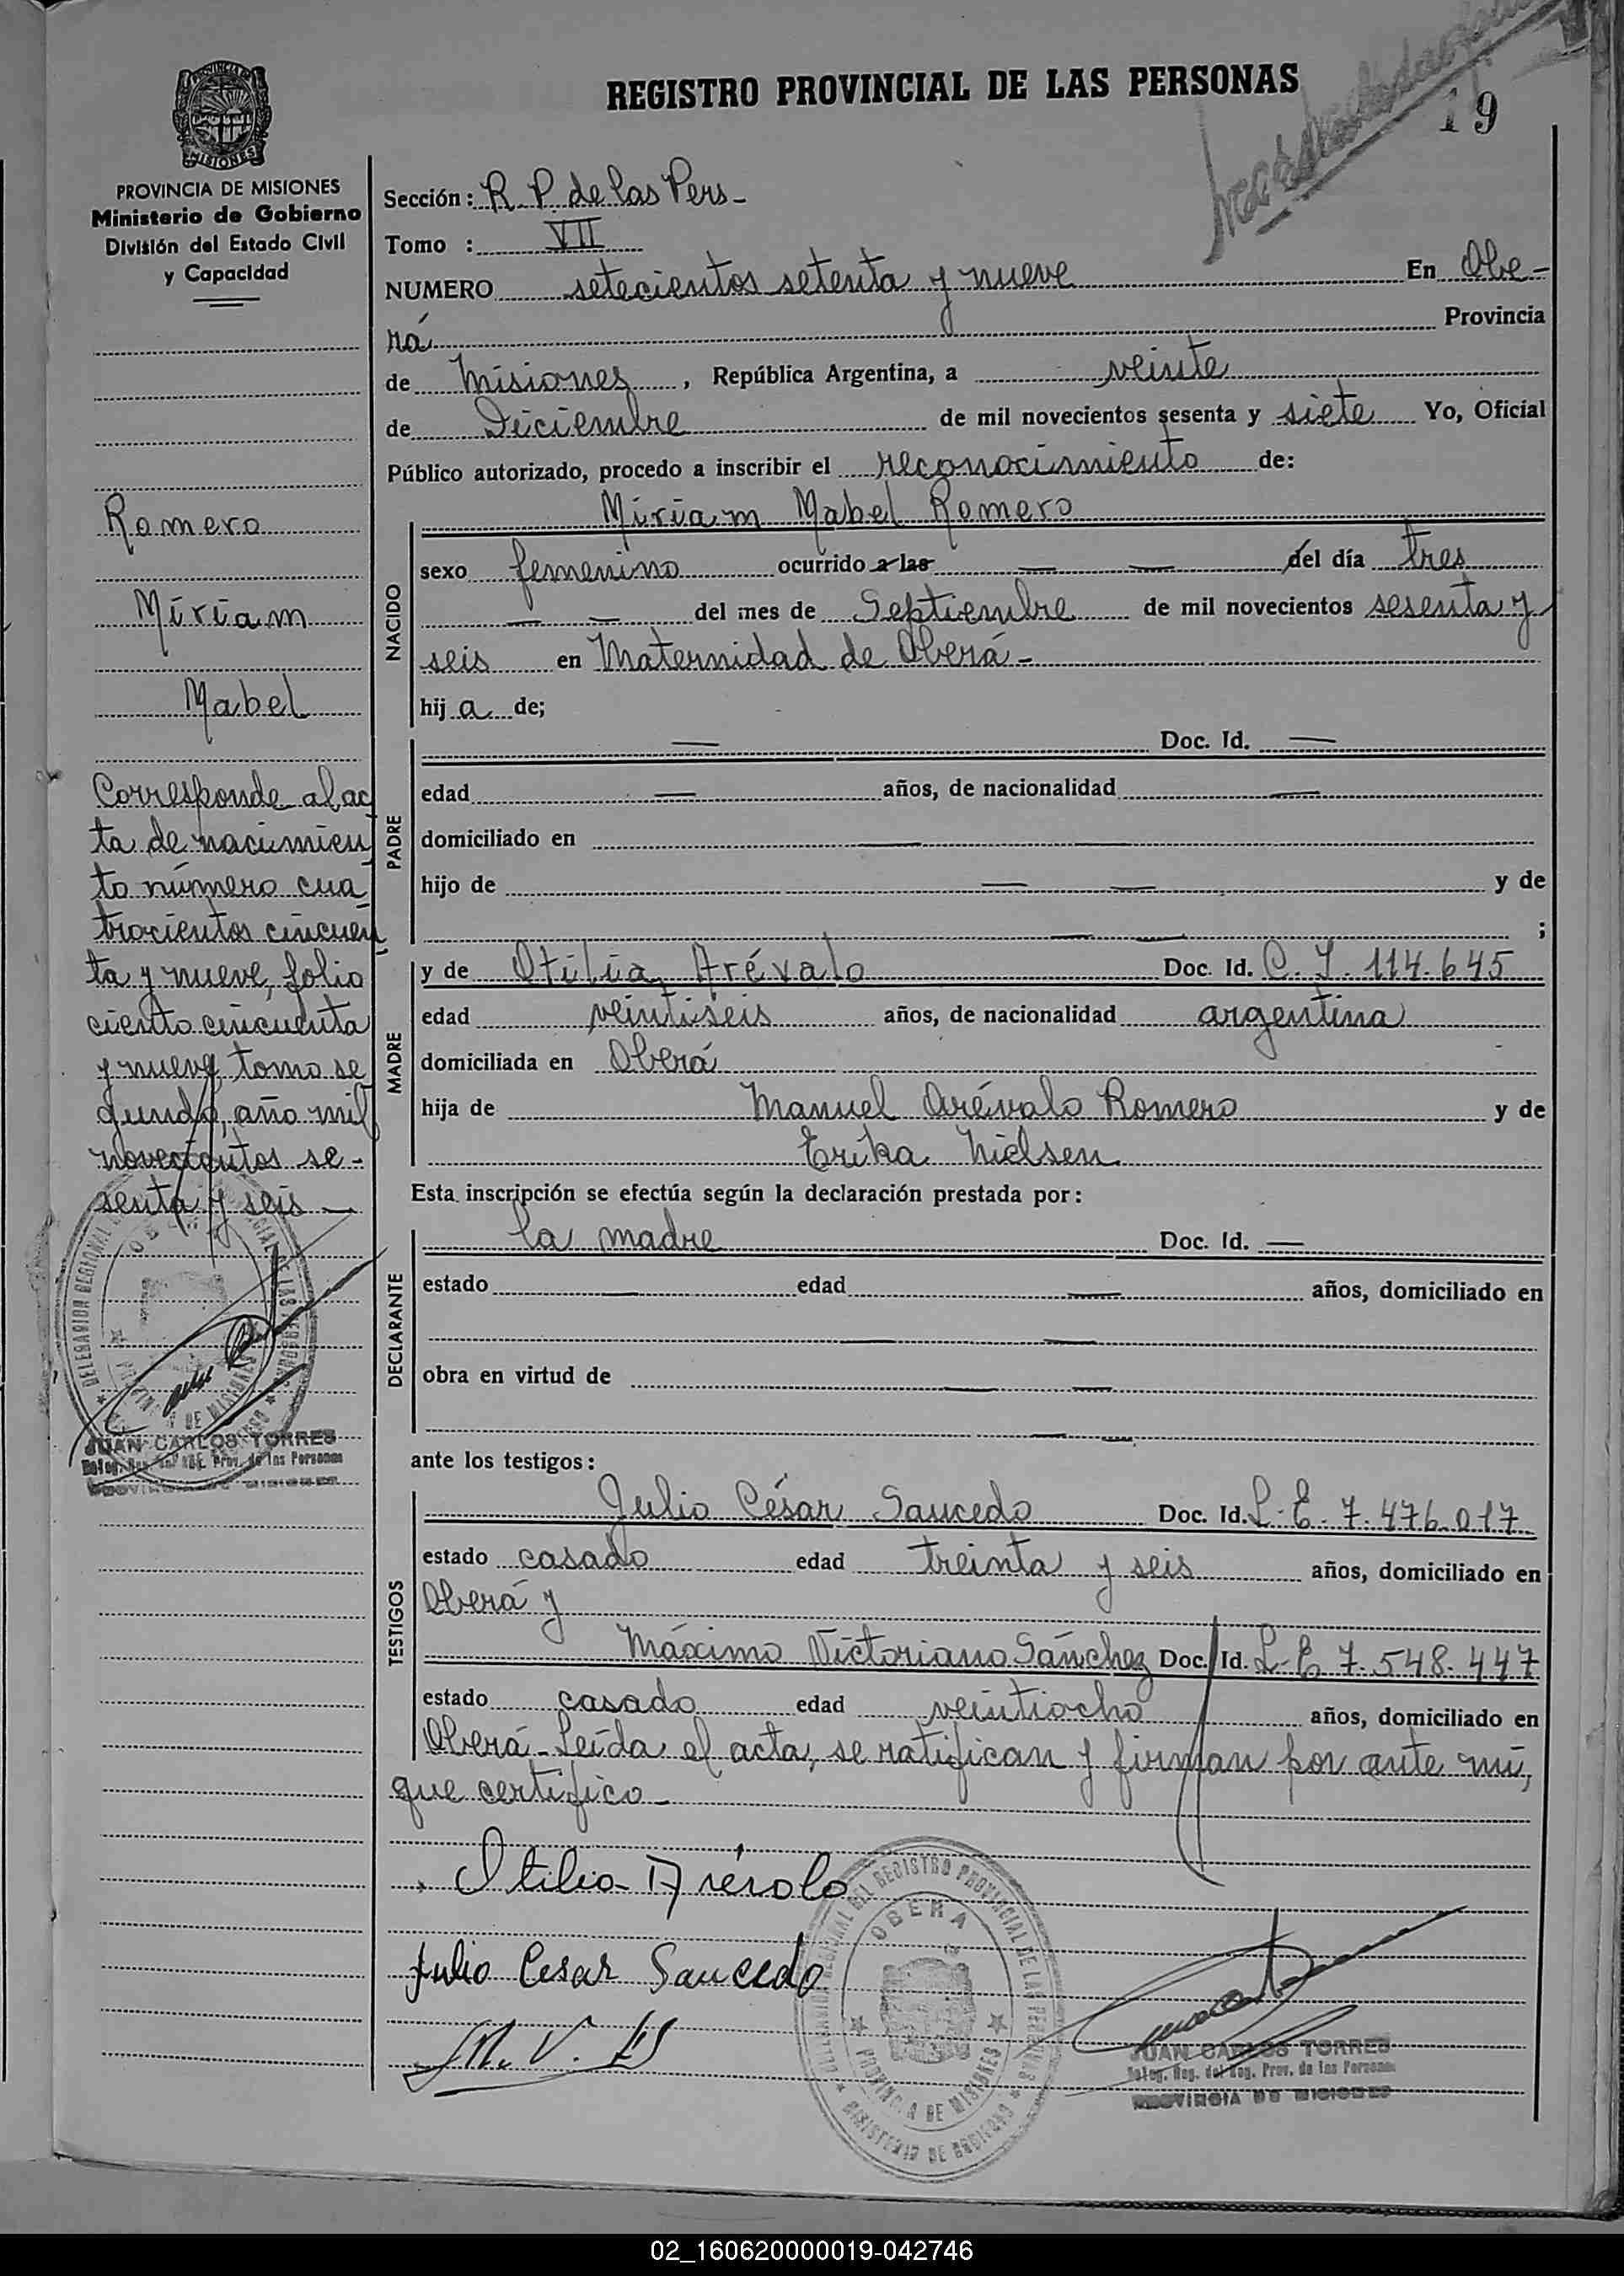 REGISTRO PROVINCIAL DE LAS PERSONAS
19
PROVINCIA DE MISIONES
MISIONES
PROVINCIA DE MISIONES
Ministerio de Gobierno
División del Estado Civil
y Capacidad
Romero
Miriam
Mabel
Corresponde al ac
ta de nacimien
to número cua
trocientos cincuen
ta y nueve, folio
ciento cincuenta
y nueve, tomo se
gundo, año mil
novecientos se-
senta y seis
JUAN CARLOS TORRES
Deleg. Reg. del Reg. Prov. de las Personas
PROVINCIA DE MISIONES
Sección: R. P. de las Pers-
Tomo : VII
NUMERO setecientos setenta y nueve En Obe-
rá Provincia
de Misiones, República Argentina, a veinte
de Diciembre de mil novecientos sesenta y siete Yo, Oficial
Público autorizado, procedo a inscribir el reconocimiento de:
Miriam Mabel Romero
NACIDO
sexo femenino ocurrido a las — — del día tres
— — del mes de Septiembre de mil novecientos sesenta y
seis en Maternidad de Oberá-
hij a de;
PADRE
— Doc. Id. —
edad — años, de nacionalidad —
domiciliado en — —
hijo de — — y de
— — ;
MADRE
y de Otilia Arévalo Doc. Id. C. I. 114.645
edad veintiseis años, de nacionalidad argentina
domiciliada en Oberá
hija de Manuel Arévalo Romero y de
Erika Nielsen
Esta inscripción se efectúa según la declaración prestada por:
DECLARANTE
la madre Doc. Id. —
estado — edad — años, domiciliado en
— —
obra en virtud de — —
— —
ante los testigos:
TESTIGOS
Julio César Saucedo Doc. Id. L. E. 7.476.017
estado casado edad treinta y seis años, domiciliado en
Oberá y
Máximo Victoriano Sánchez Doc. Id. L. E. 7.548.447
estado casado edad veintiocho años, domiciliado en
Oberá- Leída el acta, se ratifican y firman por ante mi,
que certifico-
Otilia Arévalo
Julio Cesar Saucedo
M. V.
DELEGACION REGIONAL DEL REGISTRO PROVINCIAL DE LAS PERSONAS
OBERA
PROVINCIA DE MISIONES
MINISTERIO DE GOBIERNO
JUAN CARLOS TORRES
Deleg. Reg. del Reg. Prov. de las Personas
PROVINCIA DE MISIONES
02_160620000019-042746